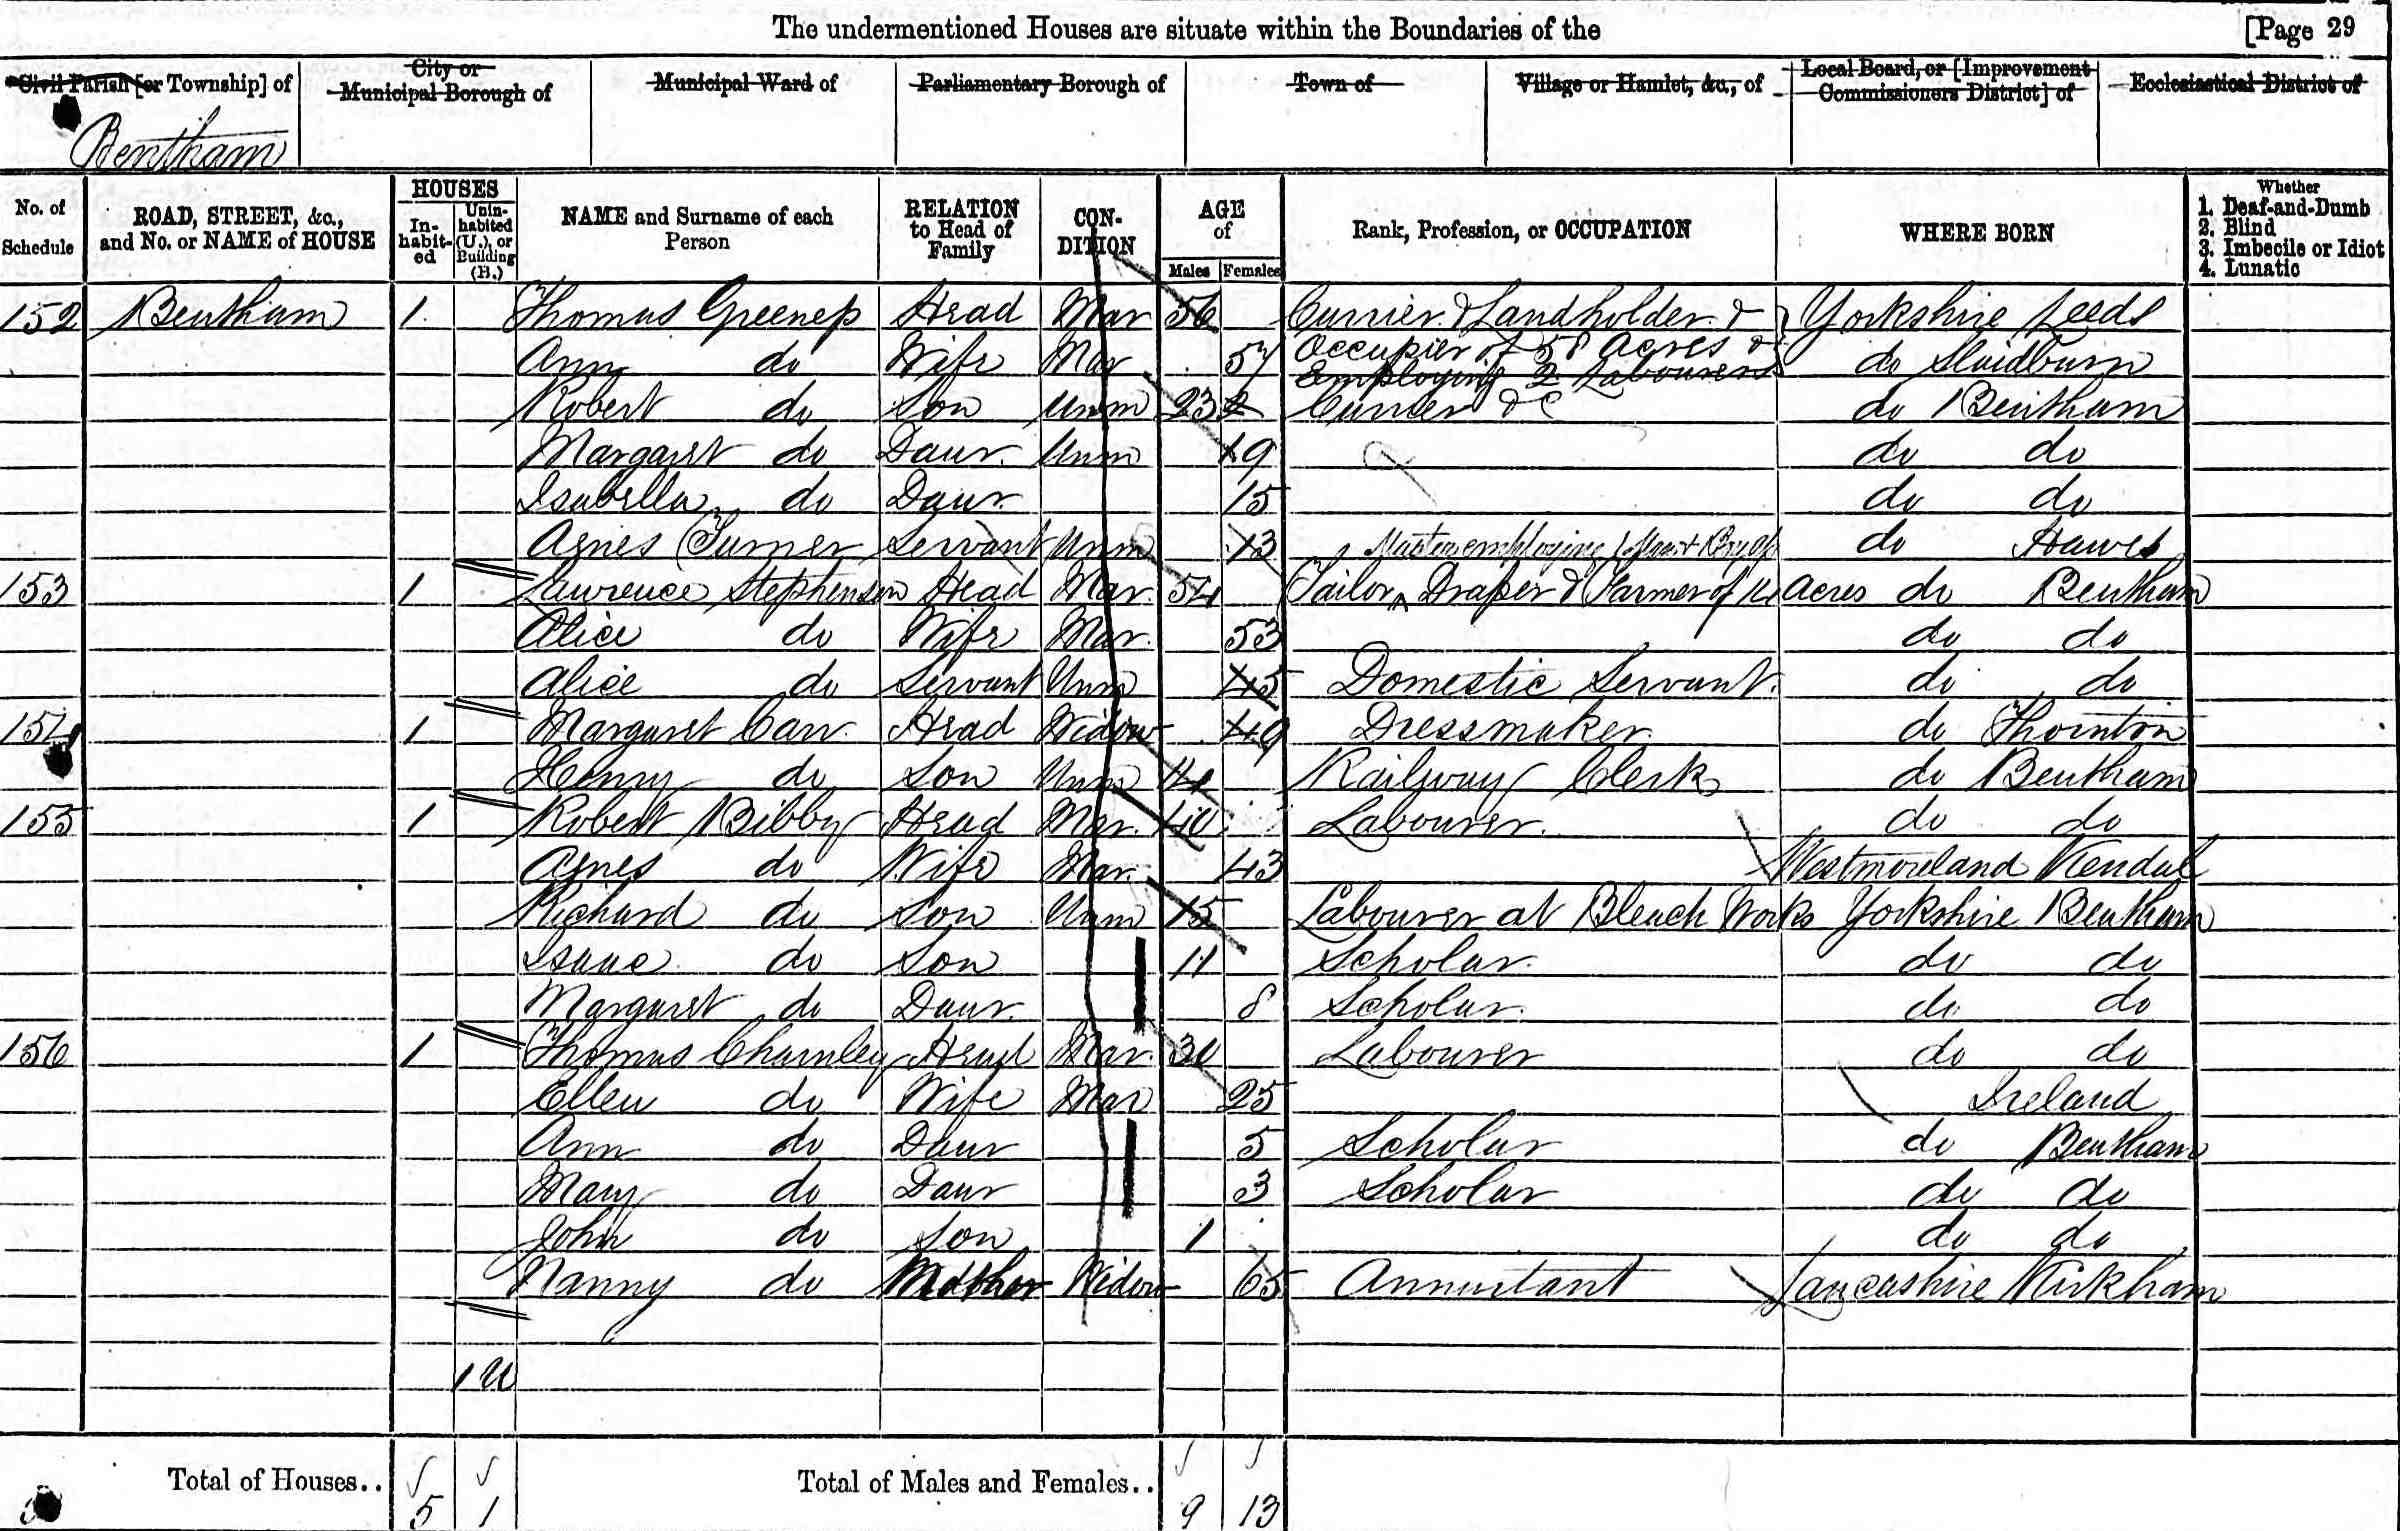 The undermentioned Houses are situate within the Boundaries of the [Page 29
Civil Parish [or Township] of City or Municipal Borough of Municipal Ward of Parliamentary Borough of Town of Village or Hamlet, &c., of Local Board, or [Improvement Commissioners District] of Ecclesiastical District of
Bentham
No. of Schedule ROAD, STREET, &c., and No. or NAME of HOUSE HOUSES In-habit-ed Unin-habited (U.), or Building (B.) NAME and Surname of each Person RELATION to Head of Family CON-DITION AGE of Males Females Rank, Profession, or OCCUPATION WHERE BORN Whether 1. Deaf-and-Dumb 2. Blind 3. Imbecile or Idiot 4. Lunatic
152 Bentham 1 Thomas Greenep Head Mar 56 Currier & Landholder & Yorkshire Leeds
Ann do Wife Mar 57 Occupier of 58 Acres & Employing 2 Labourers do Slaidburn
Robert do Son Unm 23 Currier &c do Bentham
Margaret do Daur. Unm 19 do do
Isabella do Daur. 15 do do
Agnes Turner Servant Unm 13 do Hawes
Master employing
153 1 Lawrence Stephenson Head Mar. 54 Tailor Draper & Farmer of Acres do Bentham
Alice do Wife Mar. 53 do do
Alice do Servant Unm 45 Domestic Servant. do do
154 1 Margaret Carr Head Widow 49 Dressmaker do Thornton
Henry do Son Unm Railway Clerk do Bentham
155 1 Robert Bibby Head Mar. 40 Labourer. do do
Agnes do Wife Mar. 43 Westmoreland Kendal
Richard do Son Unm 15 Labourer at Bleach Works Yorkshire Bentham
Isaac do Son 11 Scholar. do do
Margaret do Daur. 8 Scholar. do do
156 1 Thomas Charnley Head Mar. 30 Labourer do do
Ellen do Wife Mar 25 Ireland
Ann do Daur 5 Scholar do Bentham
Mary do Daur 3 Scholar do do
John do Son 1 do do
Nanny do Mother Widow 65 Annuitant Lancashire Kirkham
1 U
Total of Houses.. 5 1 Total of Males and Females.. 9 13